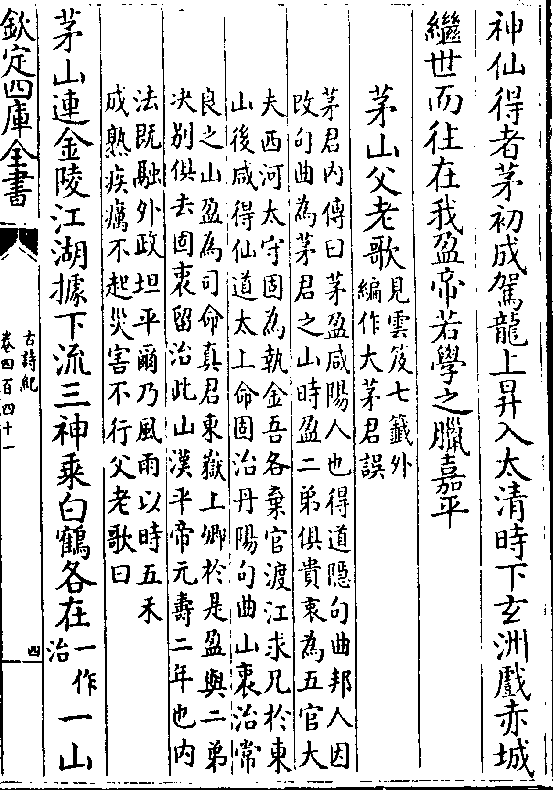 神仙得者茅初成駕龍上昇入太清時下玄洲戲赤城
繼世而往在我盈帝若學之臘嘉平
茅山父老歌見雲笈七籤外
編作大茅君誤
茅君內傳曰茅盈咸陽人也得道隱句曲邦人因
改句曲為茅君之山時盈二弟俱貴衷為五官大
夫西河太守固為執金吾各棄官渡江求兄於東
山後咸得仙道太上命固治丹陽句曲山衷治常
良之山盈為司命真君東嶽上卿於是盈與二弟
决别俱去固衷留治此山漢平帝元壽二年也内
法既融外政坦平爾乃風雨以時五禾
成熟疾癘不起災害不行父老歌曰
茅山連金陵江湖據下流三神乘白鶴各在一作
治一山
欽定四庫全書
古詩紀
卷四百四十一
四